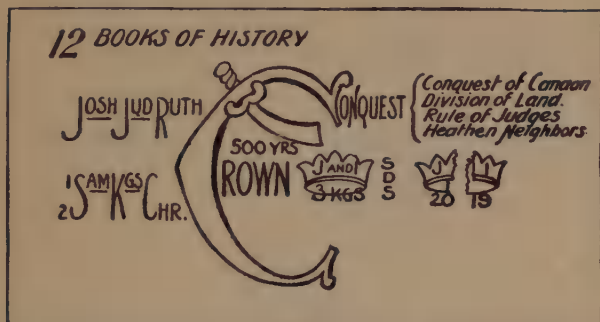 12 BOOKS OF HISTORY
JOSH JUD RUTH
CONQUEST
Conquest of Canaan
Division of Land.
Rule of Judges
Heathen Neighbors
500 YRS
CROWN
J AND I
3 KGS
S
D
S
J
20
I
19
1 2 SAM KGS CHR.